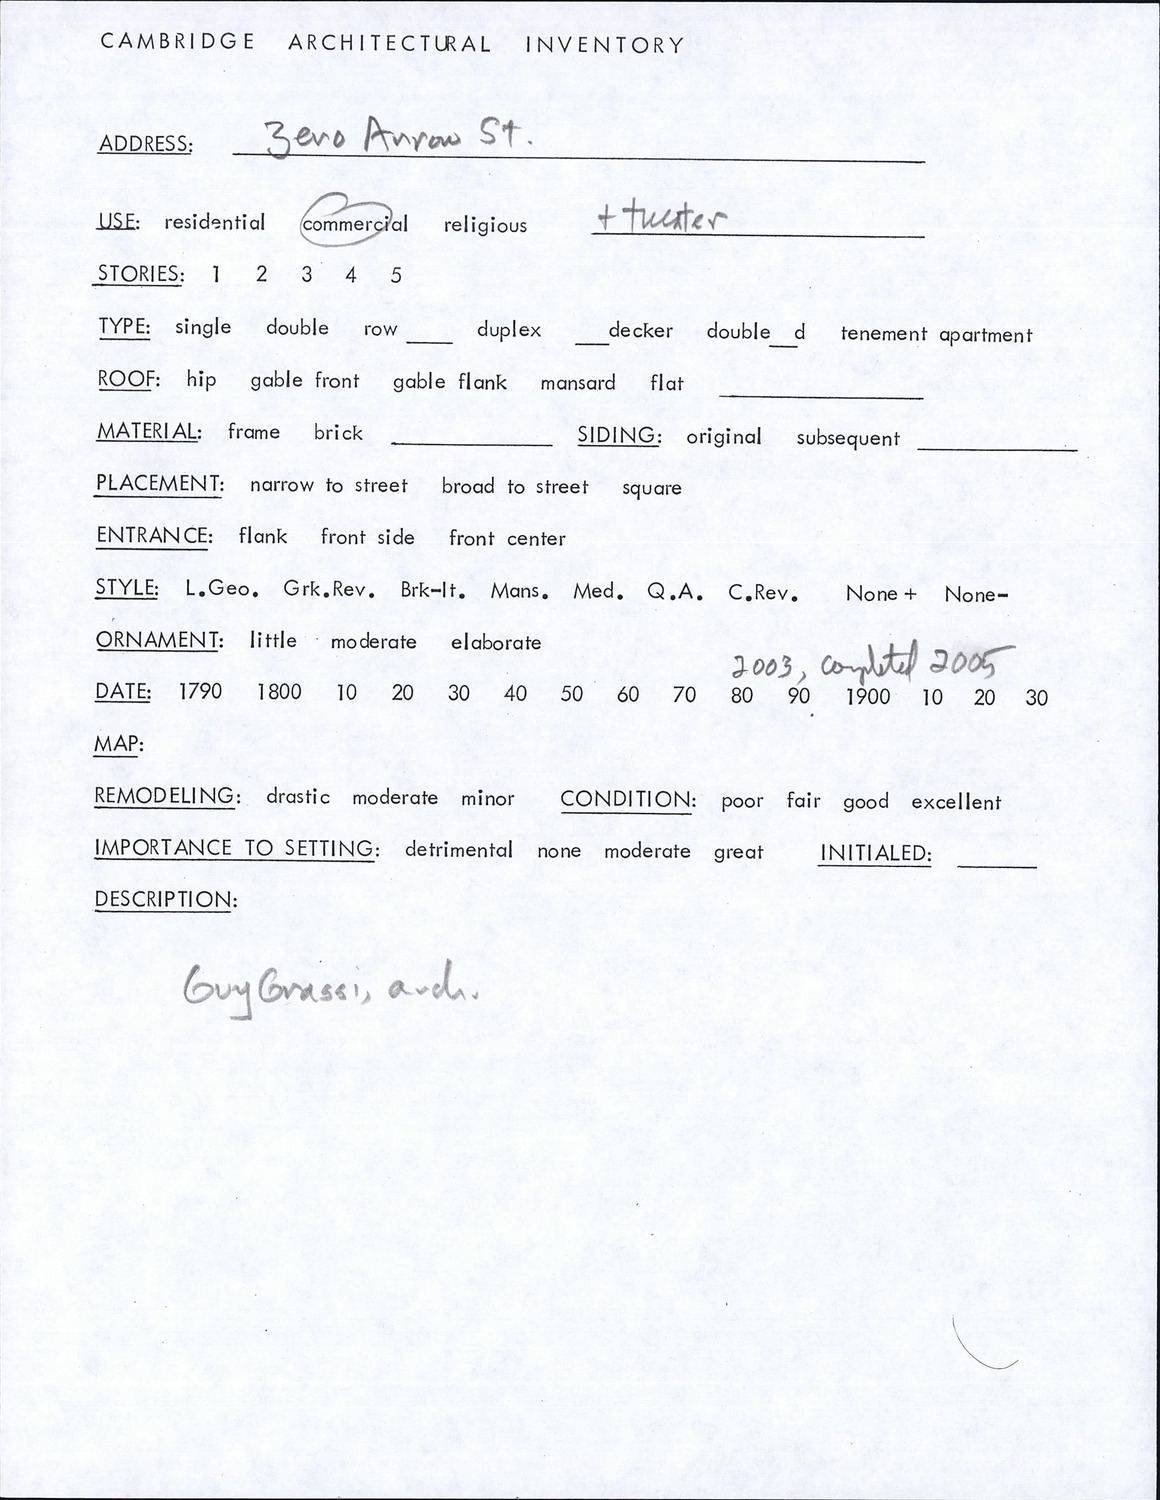 CAMBRIDGE ARCHITECTURAL INVENTORY
ADDRESS: Zero Arrow St.
USE: residential commercial religious + theater
STORIES: 1 2 3 4 5
TYPE: single double row ___ duplex ___decker double__d tenement apartment
ROOF: hip gable front gable flank mansard flat
MATERIAL: frame brick SIDING: original subsequent
PLACEMENT: narrow to street broad to street square
ENTRANCE: flank front side front center
STYLE: L.Geo. Grk.Rev. Brk-It. Mans. Med. Q.A. C.Rev. None+ None-
ORNAMENT: little moderate elaborate
2003, completed 2005
DATE: 1790 1800 10 20 30 40 50 60 70 80 90 1900 10 20 30
MAP:
REMODELING: drastic moderate minor CONDITION: poor fair good excellent
IMPORTANCE TO SETTING: detrimental none moderate great INITIALED:
DESCRIPTION:
Guy Grassi, arch.